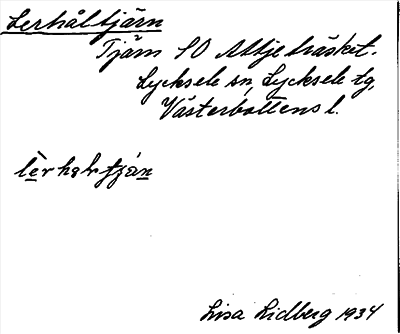 Lerhåltjärn
Tjärn SO Altjeträsket.
Lycksele sn, Lycksele tg,
Västerbottens l.
Lisa Lidberg 1934